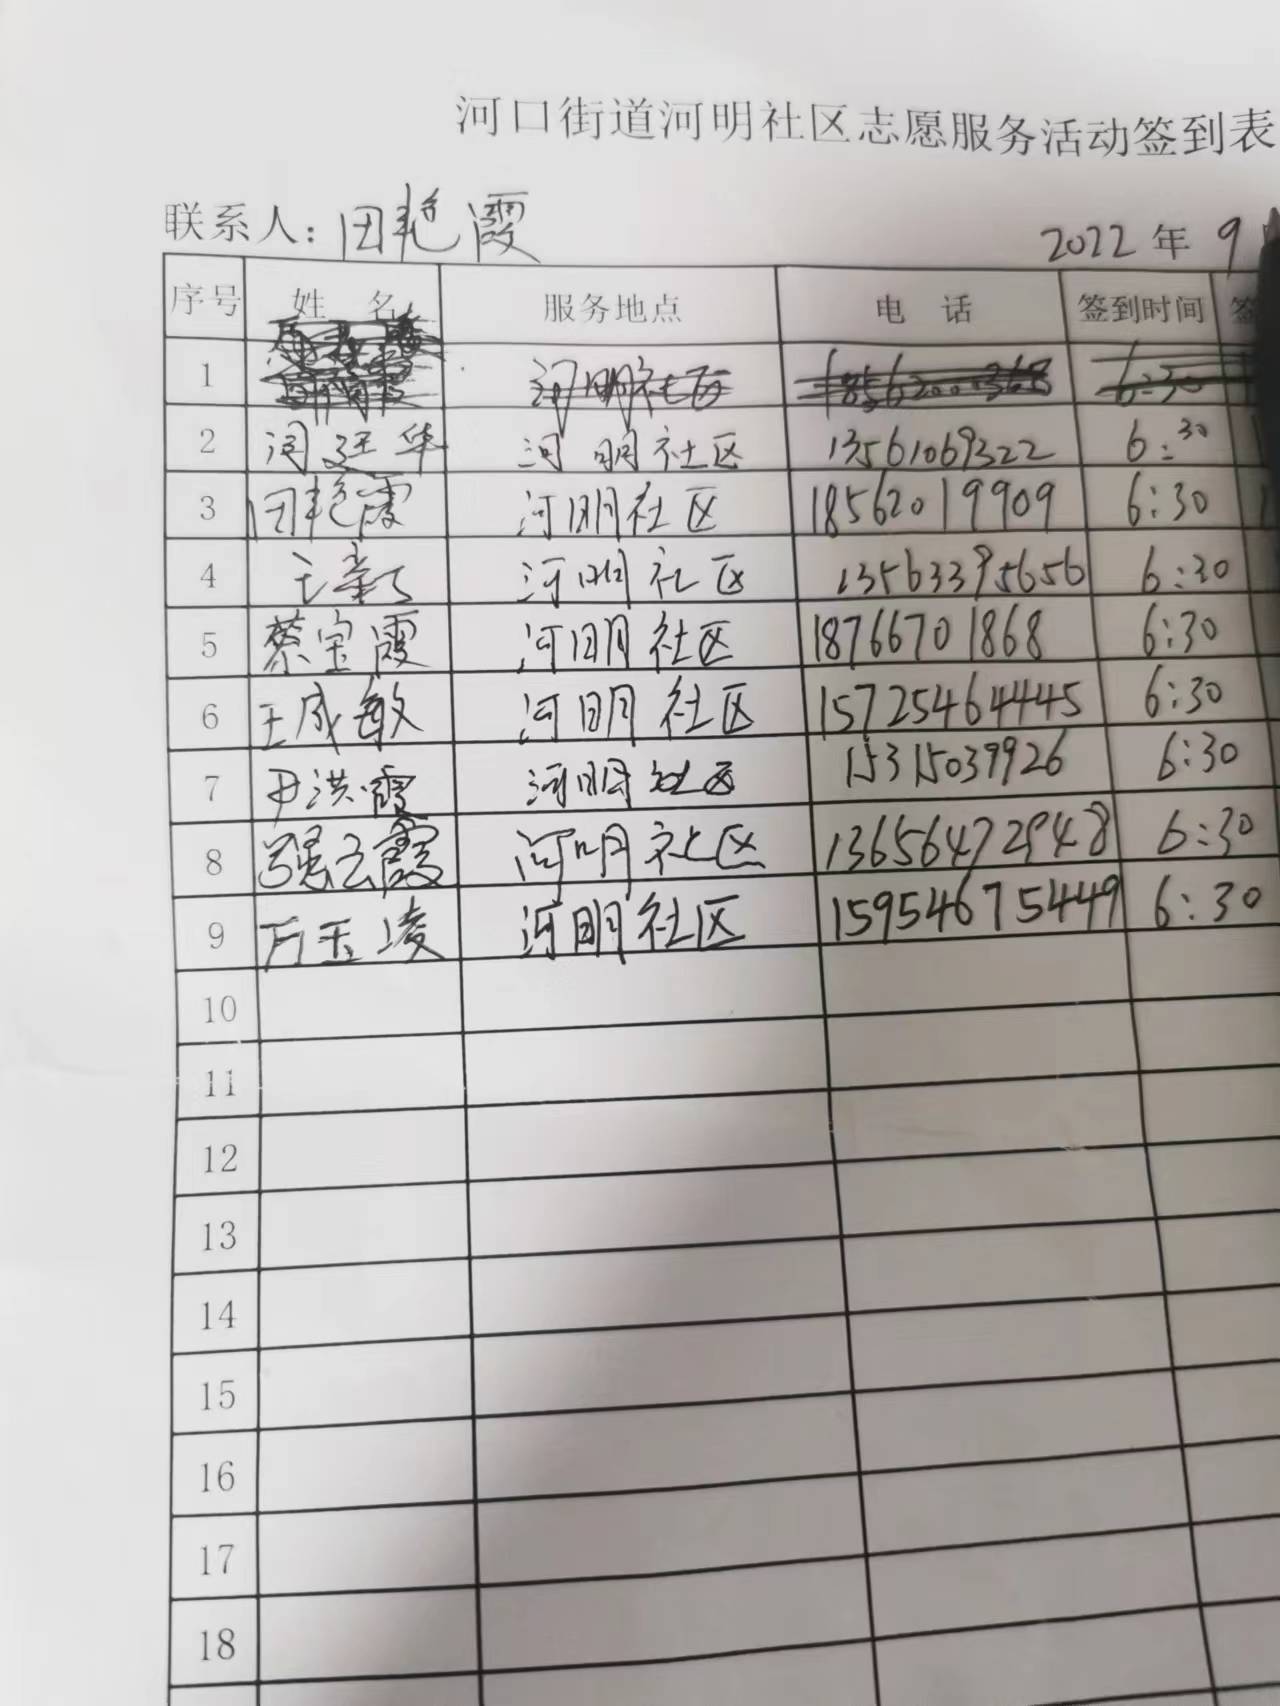 河口街道河明社区志愿服务活动签到表
联系人：田艳霞 2022年 9
序号 姓 名 服务地点 电 话 签到时间 签
1 河明社区 6:30
2 闫廷华 河明社区 13561069322 6:30
3 田艳霞 河明社区 18562019909 6:30
4 河明社区 13563395656 6:30
5 蔡宝霞 河明社区 18766701868 6:30
6 王成敏 河明社区 15725464445 6:30
7 尹洪霞 河明社区 15315039926 6:30
8 强云霞 河明社区 13656472948 6:30
9 万玉凌 河明社区 15954675449 6:30
10
11
12
13
14
15
16
17
18